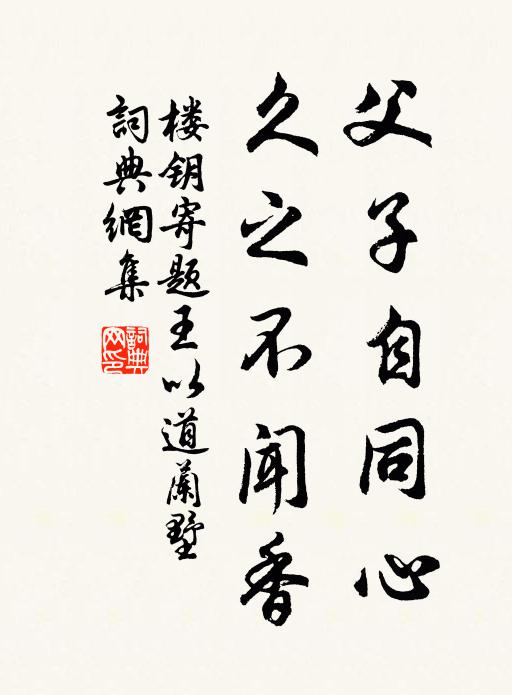 父子自同心
久之不闻香
楼钥寄题王以道蘭墅
詞典網集
詞典网印